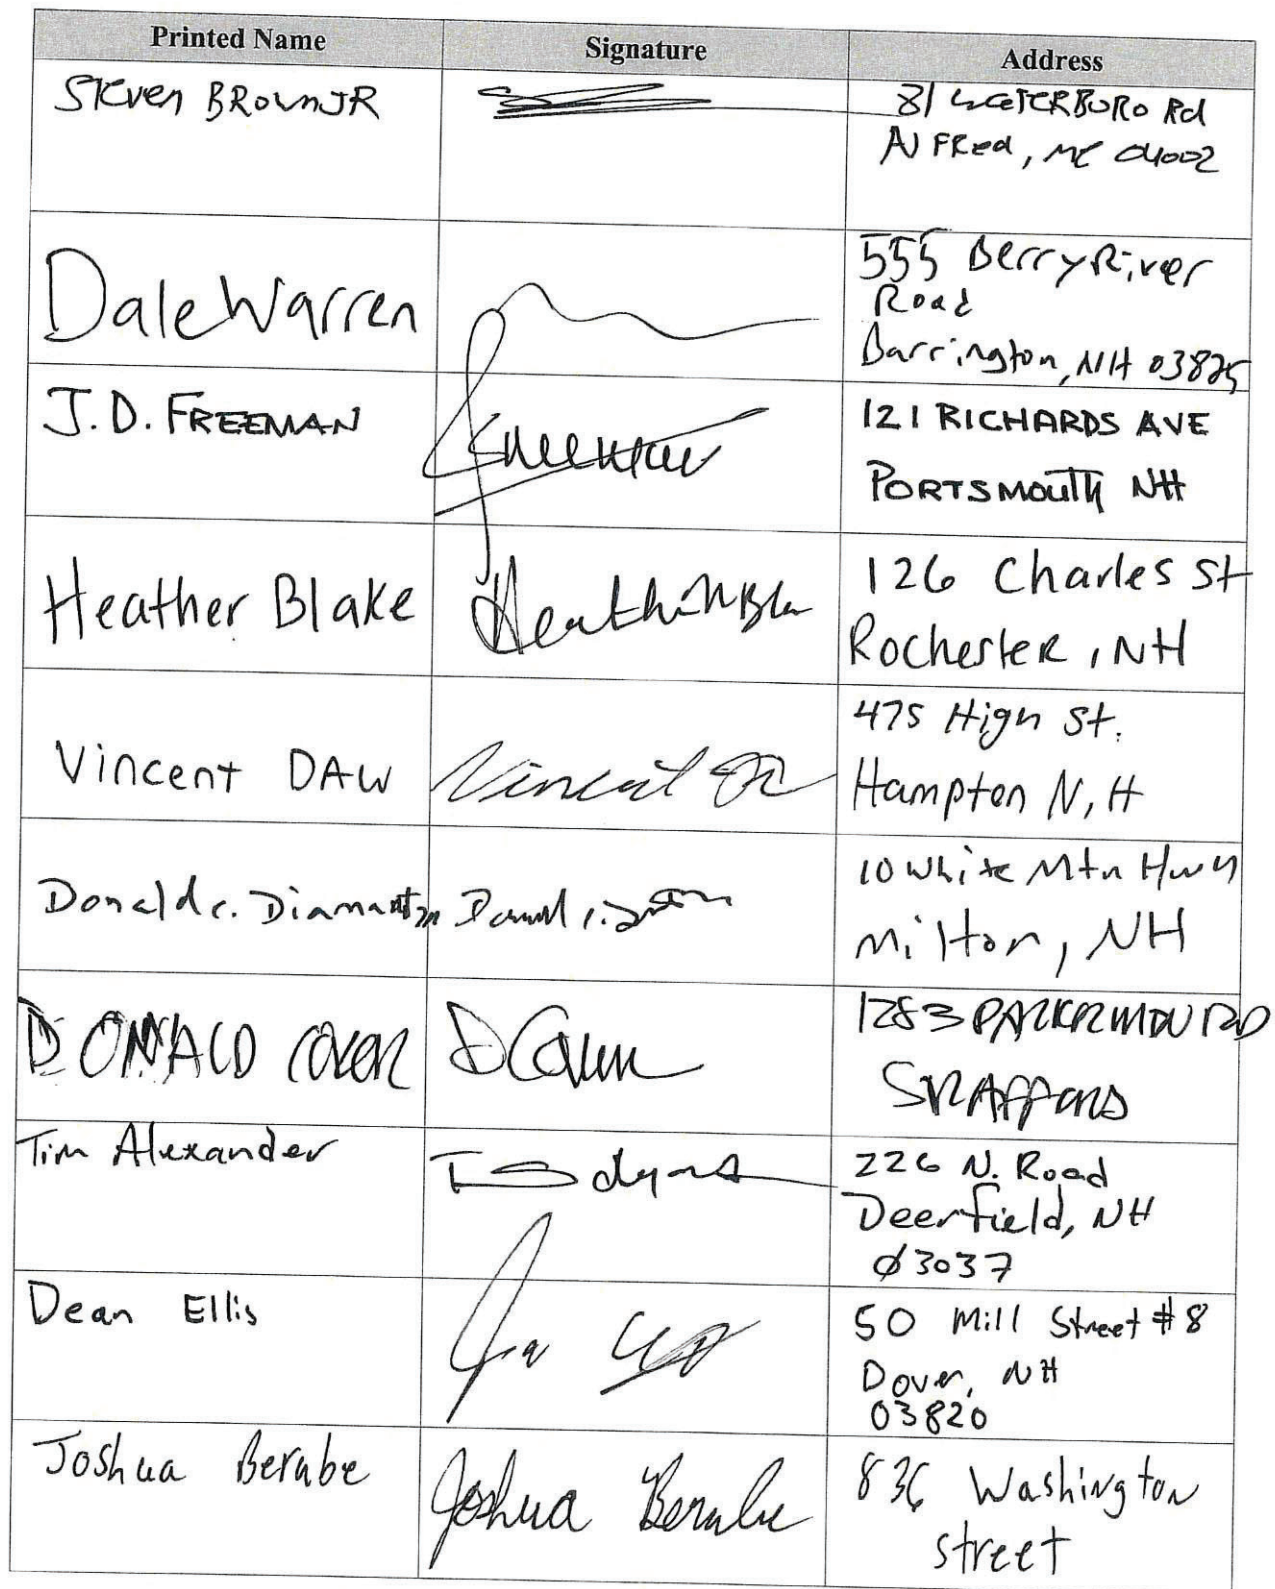 Printed Name Signature Address
Steven BROWN JR
81 WATERBORO Rd
AlFRed, ME 04002
Dale Warren
555 Berry River
Road
Barrington, NH 03825
J.D. FREEMAN
121 RICHARDS AVE
PORTSMOUTH NH
Heather Blake
126 Charles St
Rochester, NH
Vincent DAW Vincent
475 High St.
Hampton N, H
Donald c.
10 White Mtn Hwy
Milton, NH
DONALD COKER
1283 RD
STRAFFORD
Tim Alexander
226 N. Road
Deerfield, NH
03037
Dean Ellis
50 Mill Street #8
Dover, NH
03820
Joshua Berube Joshua Berube
836 Washington
street